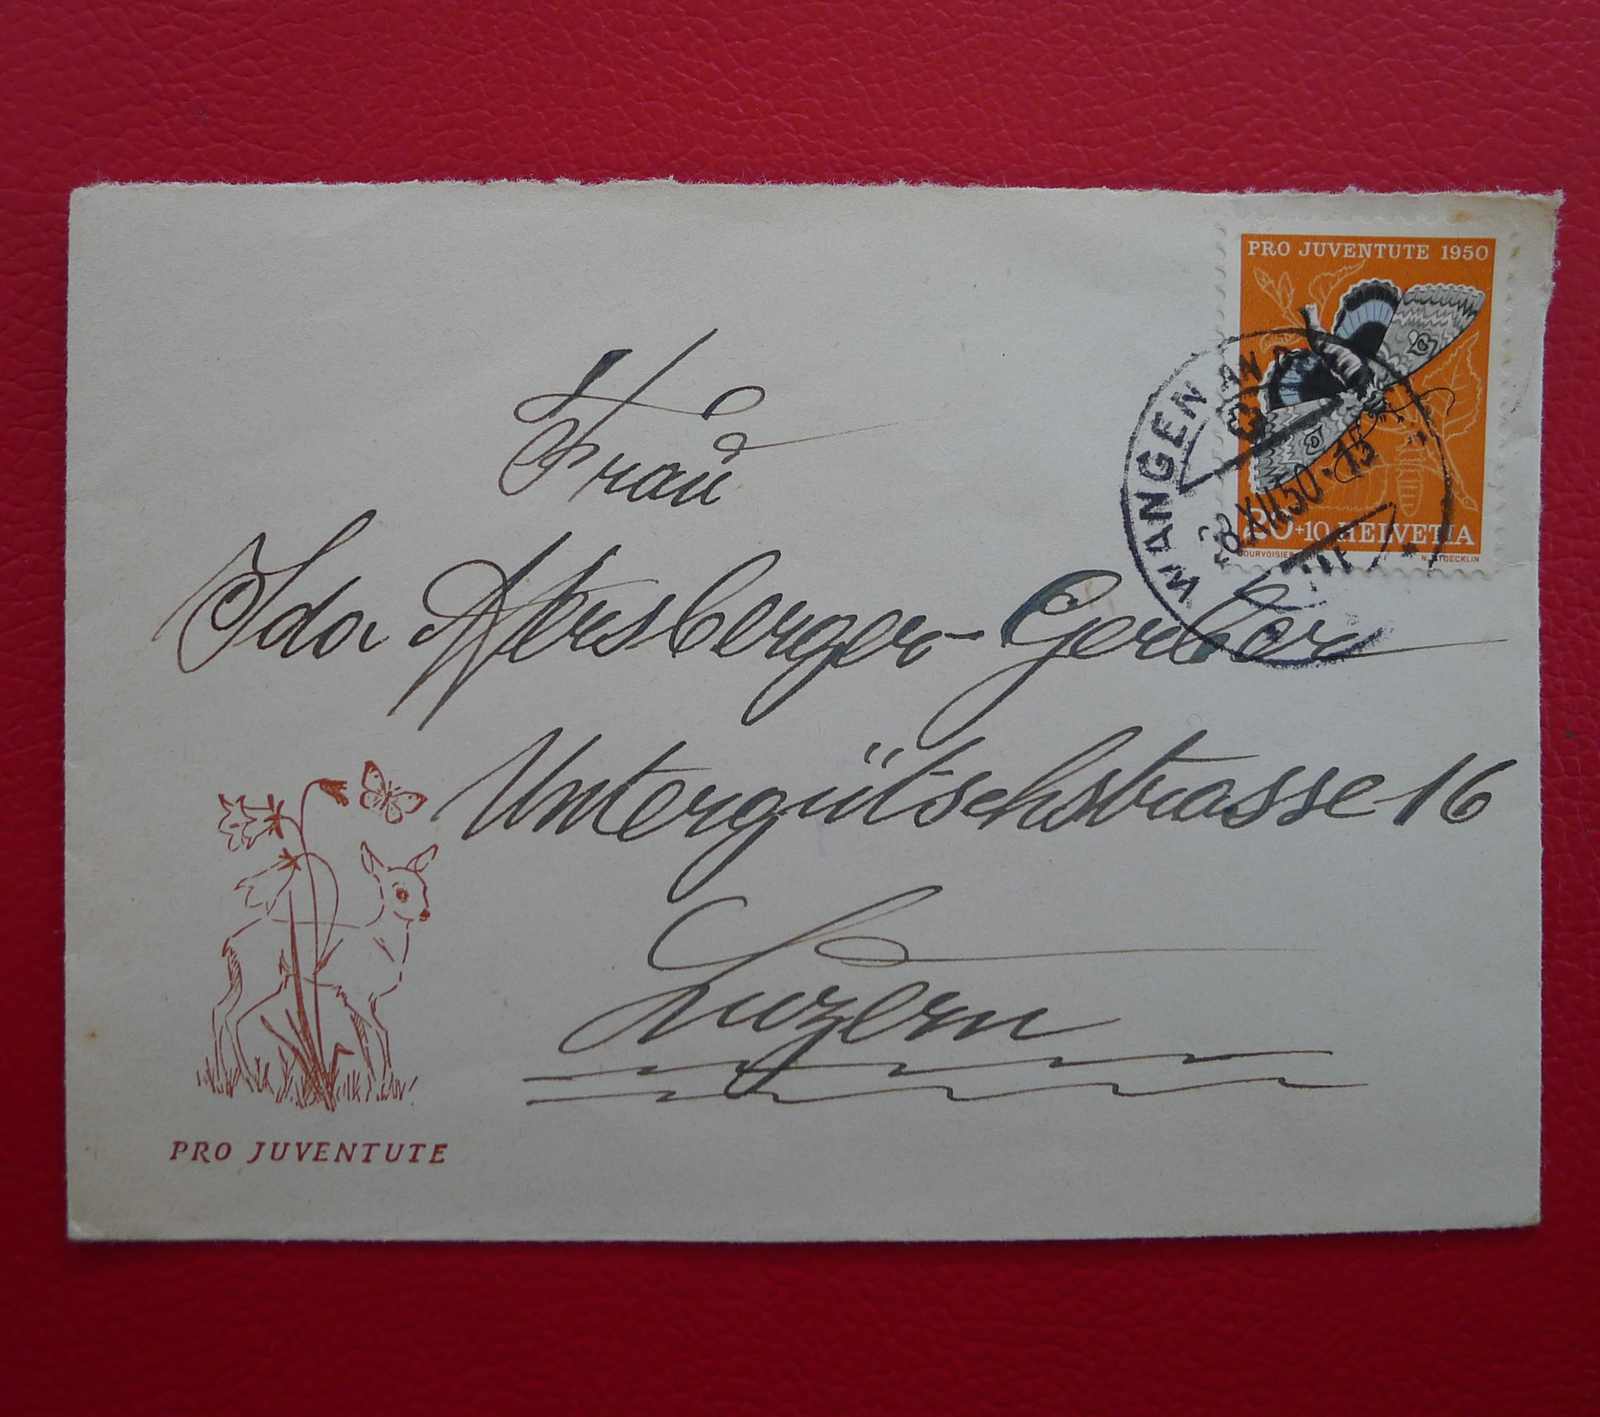 PRO JUVENTUTE 1950
WANGEN AN
8.XII.50-15
+10 HELVETIA
COURVOISIER
N. STOECKLIN
Frau
Ida Aersberger-Gerber
Untergütschstrasse 16
Luzern
PRO JUVENTUTE